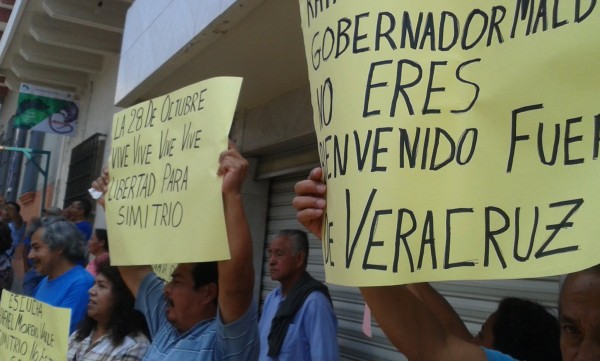 LA 28 DE OCTUBRE
VIVE VIVE VIVE VIVE
LIBERTAD PARA
SIMITRIO
GOBERNADOR MALD
NO ERES
BIENVENIDO FUER
DE VERACRUZ
RAFAEL MORENO VALLE
SIMITRIO NO